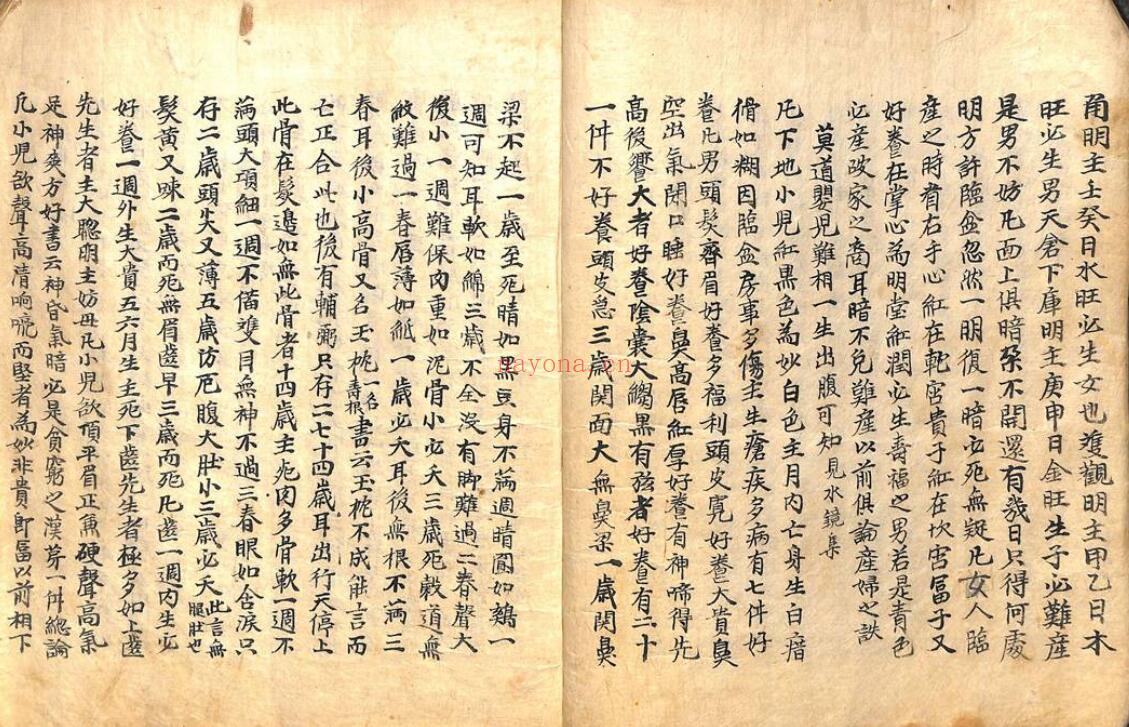 甬明主壬癸日水旺必生女也双觀明主甲乙日木
旺必生男天倉下庫明主庚申日金旺生子必難產
是男不妨凡面上俱暗朶不開還有幾日只得何處
明方許臨盆忽然一明復一暗必死無疑凡女人臨
產之時看右手心紅在乾宮貴子紅在坎宮富子又
好養在掌心為明堂紅潤必生壽福之男若是青色
必產破家之裔耳暗不免難產以前俱論產婦之訣
莫道嬰児難相一生出腹可知見水鏡集
凡下地小児紅黑色為妙白色主月內亡身生白㾗
骨如糊因臨盆房事多傷主生瘡疾多病有七件好
養凡男頭髮齊眉好養多福利頭皮寬好養大貴鼻
空出氣閉口睡好養鼻高唇紅厚好養有神啼得先
高後響大者好養陰囊大縐黑有弦者好養有二十
一件不好養頭皮急三歲関面大無鼻梁一歲関鼻
梁不起一歲至死睛如黑豆身不滿週睛圓如鷄一
週可知耳軟如綿三歲不全没有脚難過二春聲大
後小一週難保肉重如泥骨小必夭三歲死穀道無
紋難過一春唇薄如紙一歲必夭耳後無根不滿三
春耳後小高骨又名玉枕一名壽根書云玉枕不成能言而
亡正合此也後有輔弼只存二七十四歲耳出行天停上
此骨在髮邊如無此骨者十四歲主死肉多骨軟一週不
滿頭大項細一週不偕雙目無神不過三春眼如含淚只
存二歲頭尖又薄五歲防厄腹大肚小三歲必夭此言無腿肚也
髮黃又踈二歲而死無眉齒早三歲而死凡齒一週內生必
好養一週外生大貴五六月生主死下齒先生者極多如上齒
先生者主大聰明主妨母凡小児欲頂平眉正魚硬聲高氣
足神爽方好書云神昏氣暗必是貧窮之漢芽一件總論
凡小児欲聲高清响喨而堅者為妙非貴即富以前相下
nayona.cn